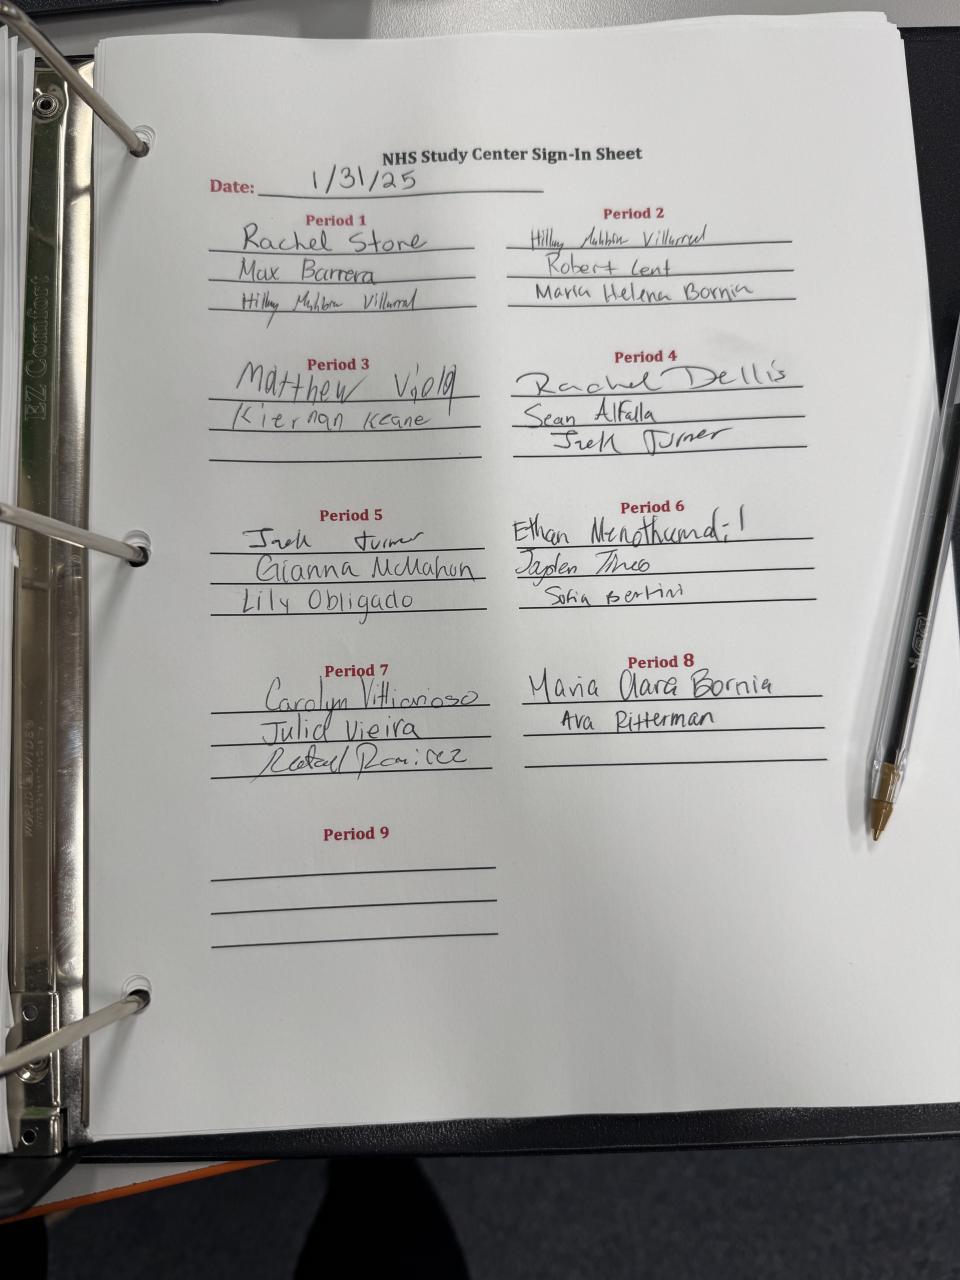 NHS Study Center Sign-In Sheet
Date: 1/31/25
Period 1
Rachel Stone
Max Barrera
Villarreal
Period 2
Villarreal
Robert Lent
Maria Helena Bornia
Period 3
Matthew Viola
Kiernan Keane
Period 4
Rachel Dellis
Sean Alfalla
Turner
Period 5
Turner
Gianna McMahon
Lily Obligado
Period 6
Ethan
Jayden
Sofia Bertini
Period 7
Carolyn
Julia Vieira
Rafael Ramirez
Period 8
Maria Clara Bornia
Ava Ritterman
Period 9
EZ Comfort
WORLD WIDE